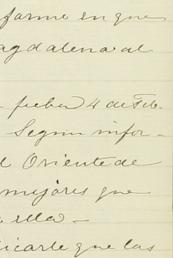 forme en que
agdalena al
fecha 4 de Feb.
Segun infor-
l Oriente de
mejores que
ella -
icarle que las